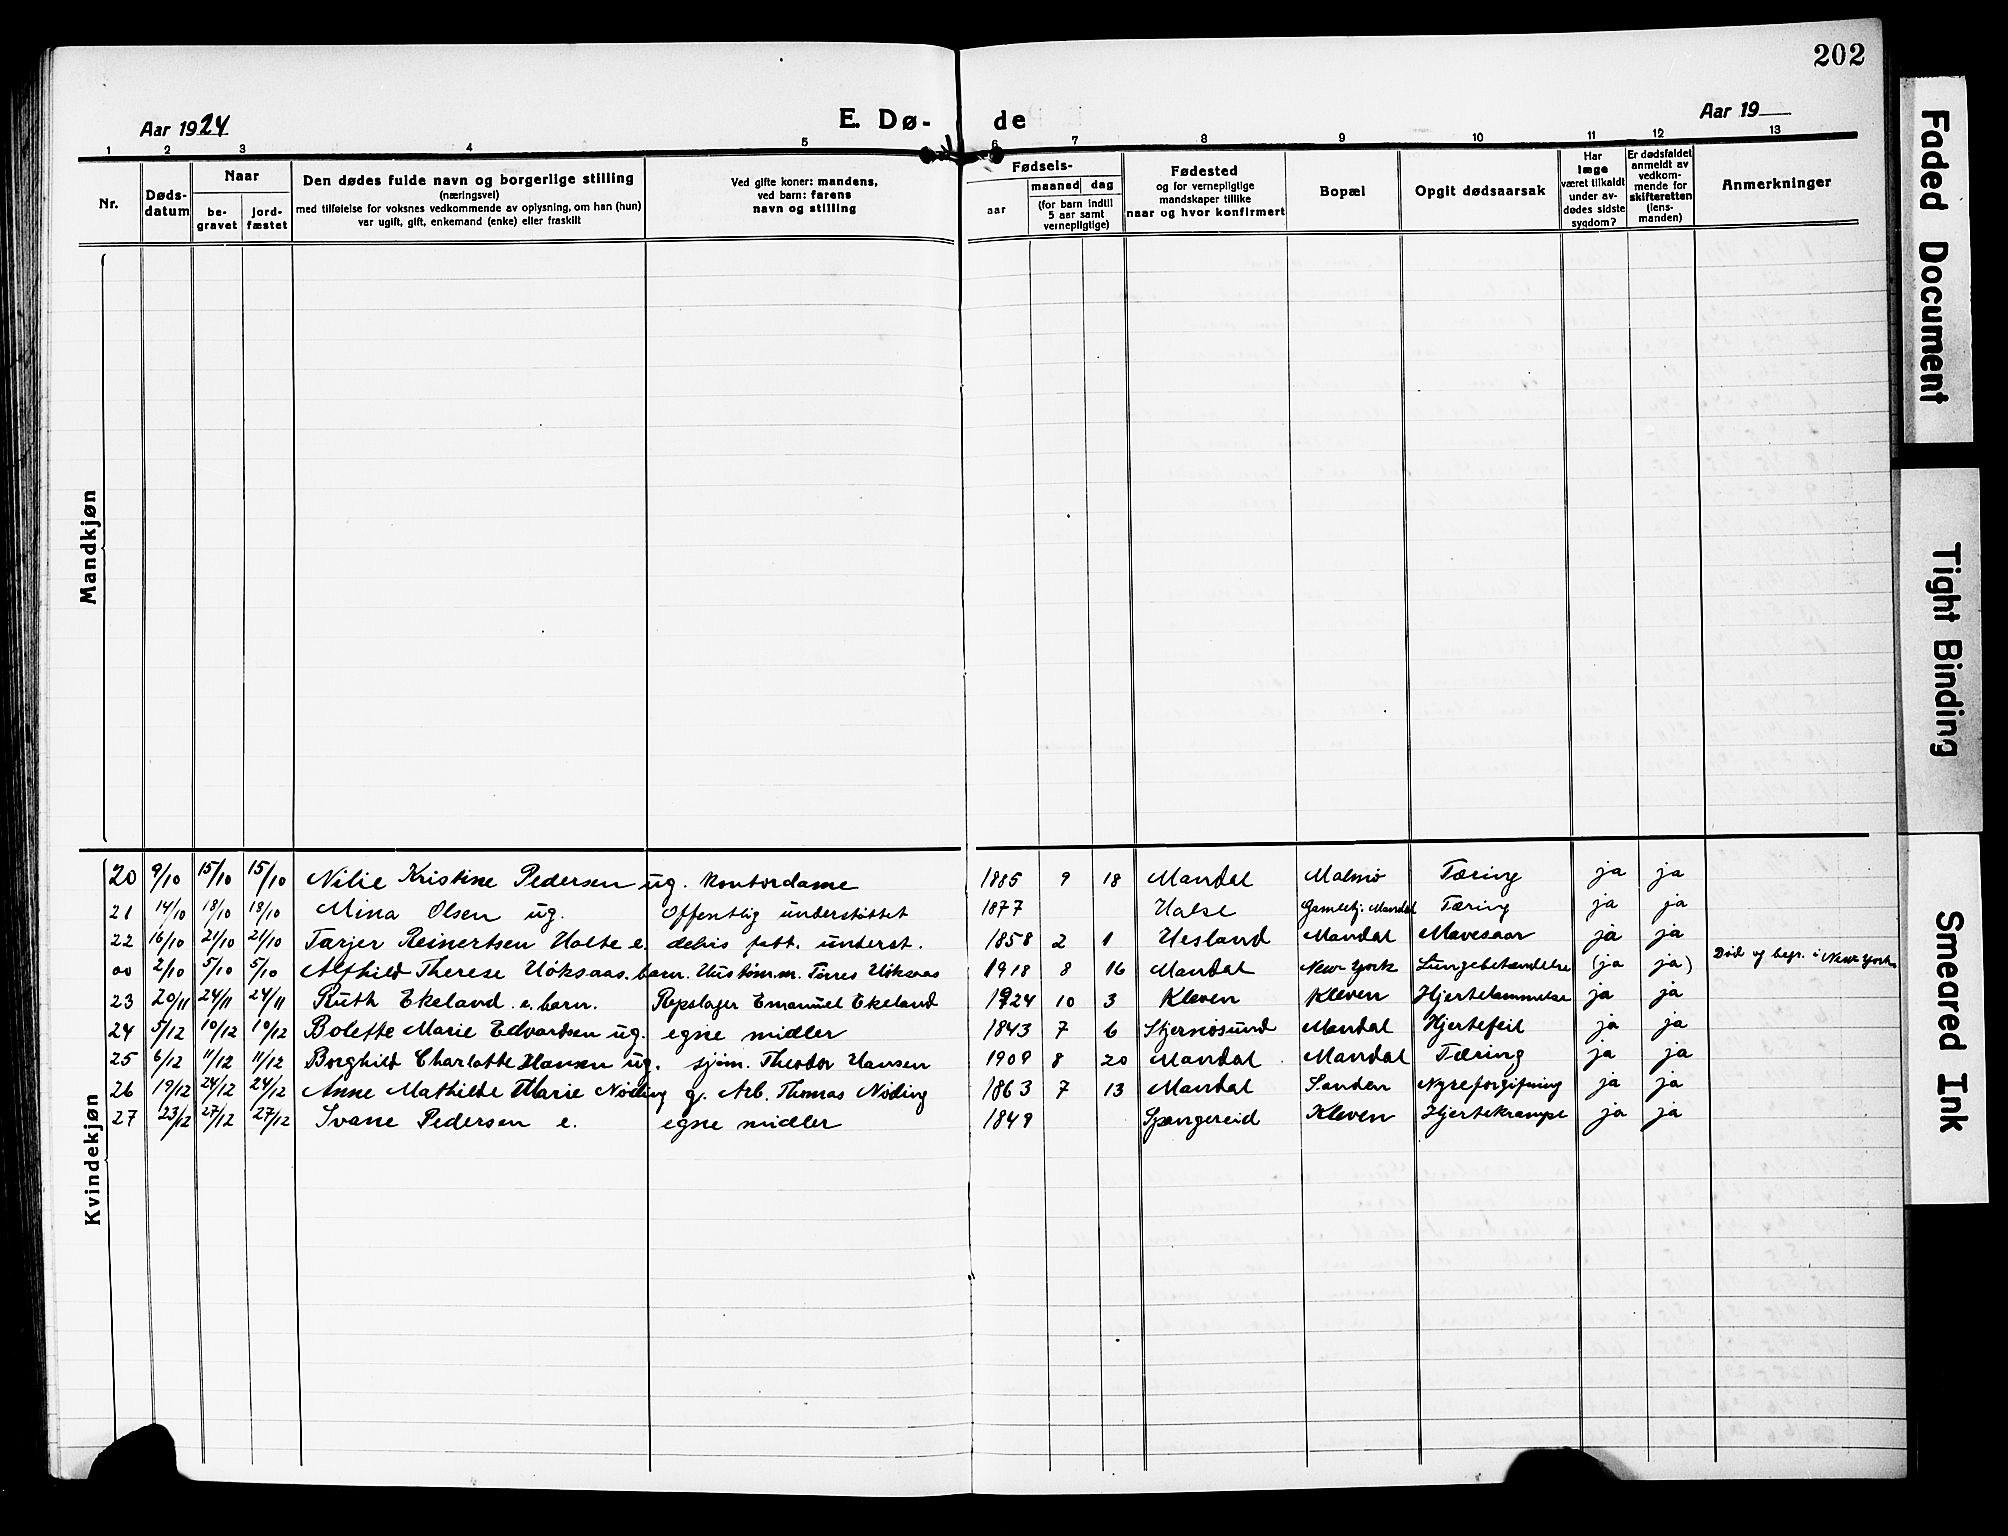 202
Aar 1924
E. Dø-
de
Aar 19
1 2 3 4 5 6 7 8 9 10 11 12 13
Nr.
Døds-
datum
Naar
be-
gravet
jord-
fæstet
Den dødes fulde navn og borgerlige stilling
(næringsvei)
med tilføielse for voksnes vedkommende av oplysning, om han (hun)
var ugift, gift, enkemand (enke) eller fraskilt
Ved gifte koner: mandens,
ved barn: farens
navn og stilling
Fødsels-
aar
maaned dag
(for barn indtil
5 aar samt
vernepligtige)
Fødested
og for vernepligtige
mandskaper tillike
naar og hvor konfirmert
Bopæl
Opgit dødsaarsak
Har
læge
været tilkaldt
under av-
dødes sidste
sygdom?
Er dødsfaldet
anmeldt av
vedkom-
mende for
skifteretten
(lens-
manden)
Anmerkninger
Mandkjøn
Kvindekjøn
20 9/10 15/10 15/10 Nilie Kristine Pedersen ug. Kontordame 1885 9 18 Mandal Malmø Tæring ja ja
21 14/10 18/10 18/10 Mina Olsen ug. Offentlig understøttet 1877 Halse Gamlehj. Mandal Tæring ja ja
22 16/10 21/10 21/10 Tarjer Reinertsen Holte e. delvis fatt. underst. 1858 2 1 Uesland Mandal Mavesaar ja ja
00 2/10 5/10 5/10 Alfhild Therese Høksaas. barn. Hustømm. Tørres Høksaas 1918 8 16 Mandal New York Lungebetændelse (ja ja) Død og begr. i New York.
23 20/11 24/11 24/11 Ruth Ekeland e. barn. Repslager Emanuel Ekeland 1924 10 3 Kleven Kleven Hjertelammelse ja ja
24 5/12 10/12 10/12 Bolette Marie Edvardsen ug. egne midler 1843 7 6 Stjernøsund Mandal Hjertefeil ja ja
25 6/12 11/12 11/12 Borghild Charlotte Hansen ug. sjøm. Theodor Hansen 1909 8 20 Mandal Mandal Tæring ja ja
26 19/12 24/12 24/12 Anne Mathilde Marie Nøding g. Arb. Thomas Nøding 1863 7 13 Mandal Sanden Nyreforgifning ja ja
27 23/12 27/12 27/12 Ivane Pedersen e. egne midler 1849 Spangereid Kleven Hjertekrampe ja ja
Faded Document
Tight Binding
Smeared Ink